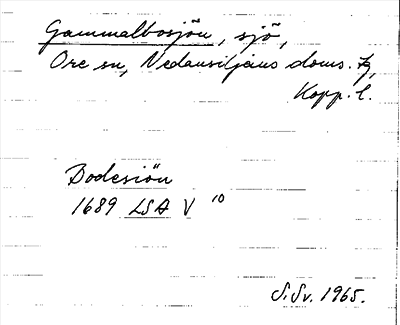 Gammalbosjön, sjö,
Ore sn, Nedansiljans doms. tg,
Kopp. l.
Bodesiön
1689 LSA V 10
S.Sv. 1965.